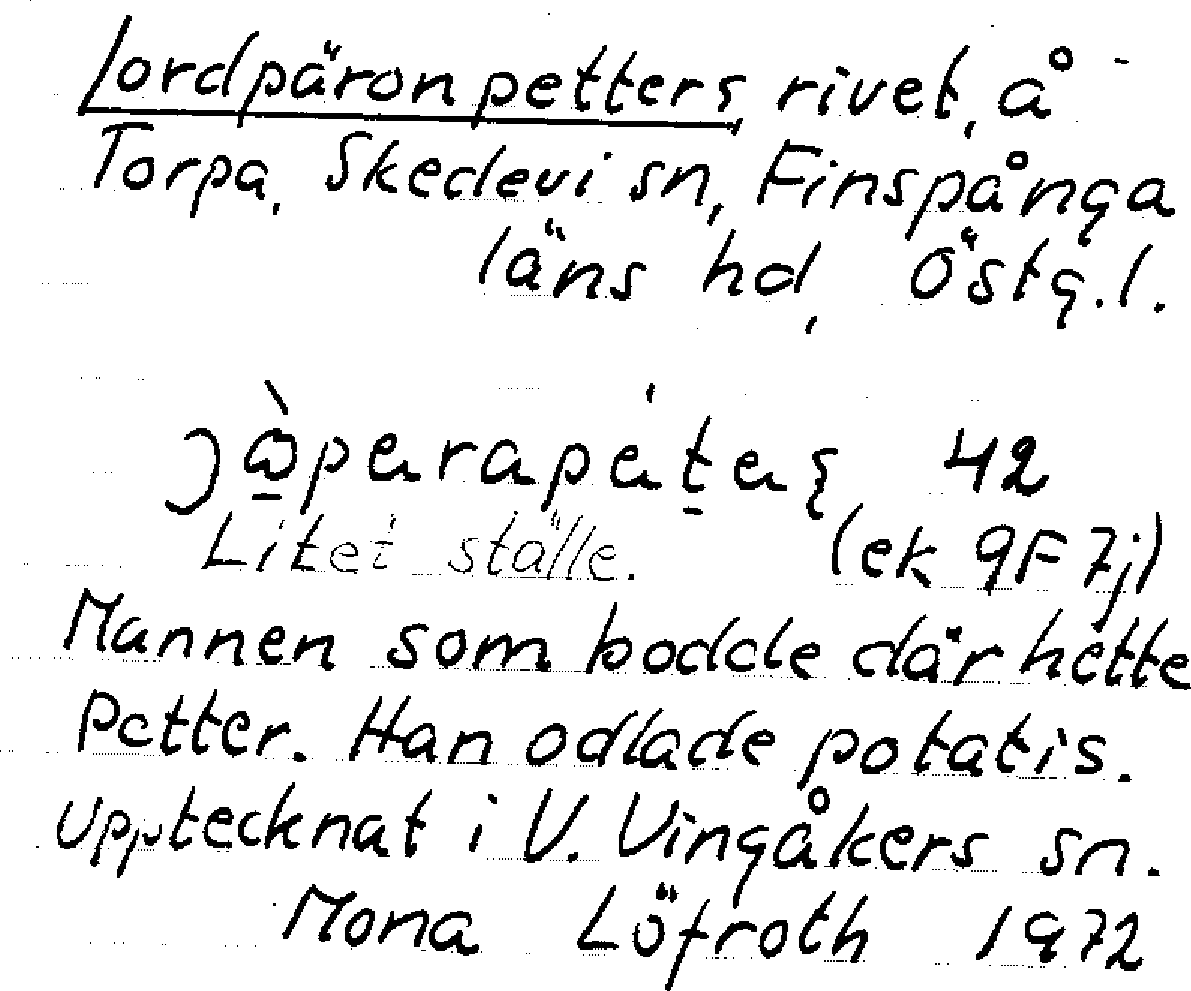 Jordpäronpetters, rivet, å
Torpa, Skedevi sn, Finspånga
läns hd, Östg.l.
42
Litet ställe. (ek 9F 7j)
Mannen som bodde där hette
Petter. Han odlade potatis.
Upptecknat i V. Vingåkers sn.
Mona Löfroth 1972